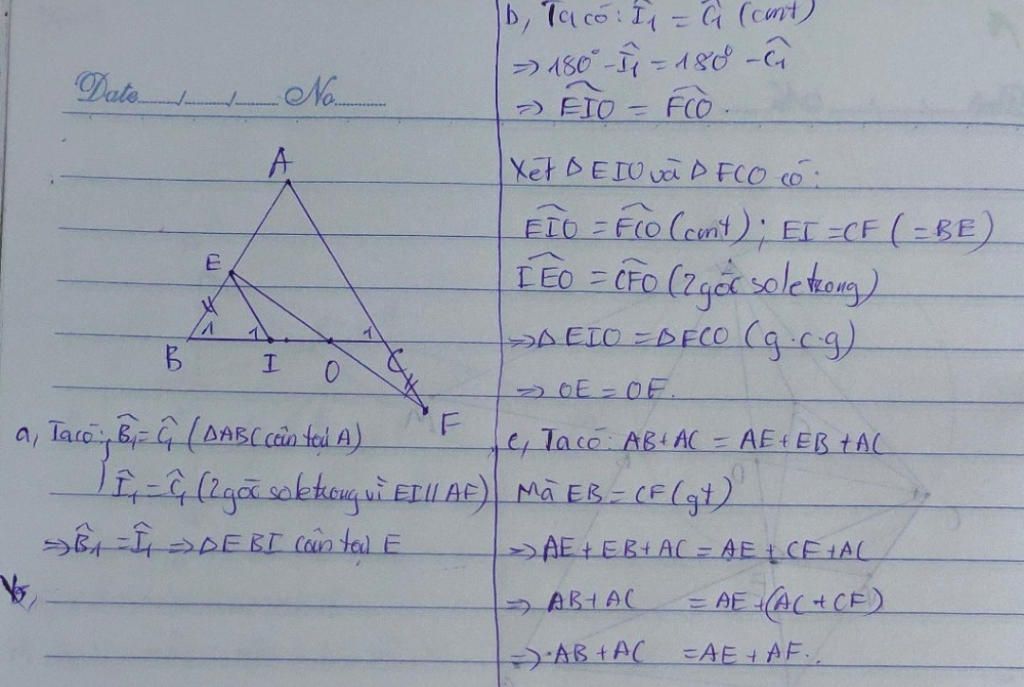 Date / / No
A
E
1 1 1
B I O C
F
a, Ta có: B̂₁ = Ĉ₁ (ΔABC cân tại A)
Î₁ = Ĉ₁ (2 góc so le trong vì EI // AF)
⇒ B̂₁ = Î₁ ⇒ Δ EBI cân tại E
b, Ta có: Î₁ = Ĉ₁ (cmt)
⇒ 180° - Î₁ = 180° - Ĉ₁
⇒ \widehat{EIO} = \widehat{FCO}.
Xét Δ EIO và Δ FCO có:
\widehat{EIO} = \widehat{FCO} (cmt); EI = CF (= BE)
\widehat{IEO} = \widehat{CFO} (2 góc so le trong)
⇒ Δ EIO = Δ FCO (g.c.g)
⇒ OE = OF.
c, Ta có: AB + AC = AE + EB + AC
Mà EB = CF (gt)
⇒ AE + EB + AC = AE + CF + AC
⇒ AB + AC = AE + (AC + CF)
⇒ AB + AC = AE + AF.